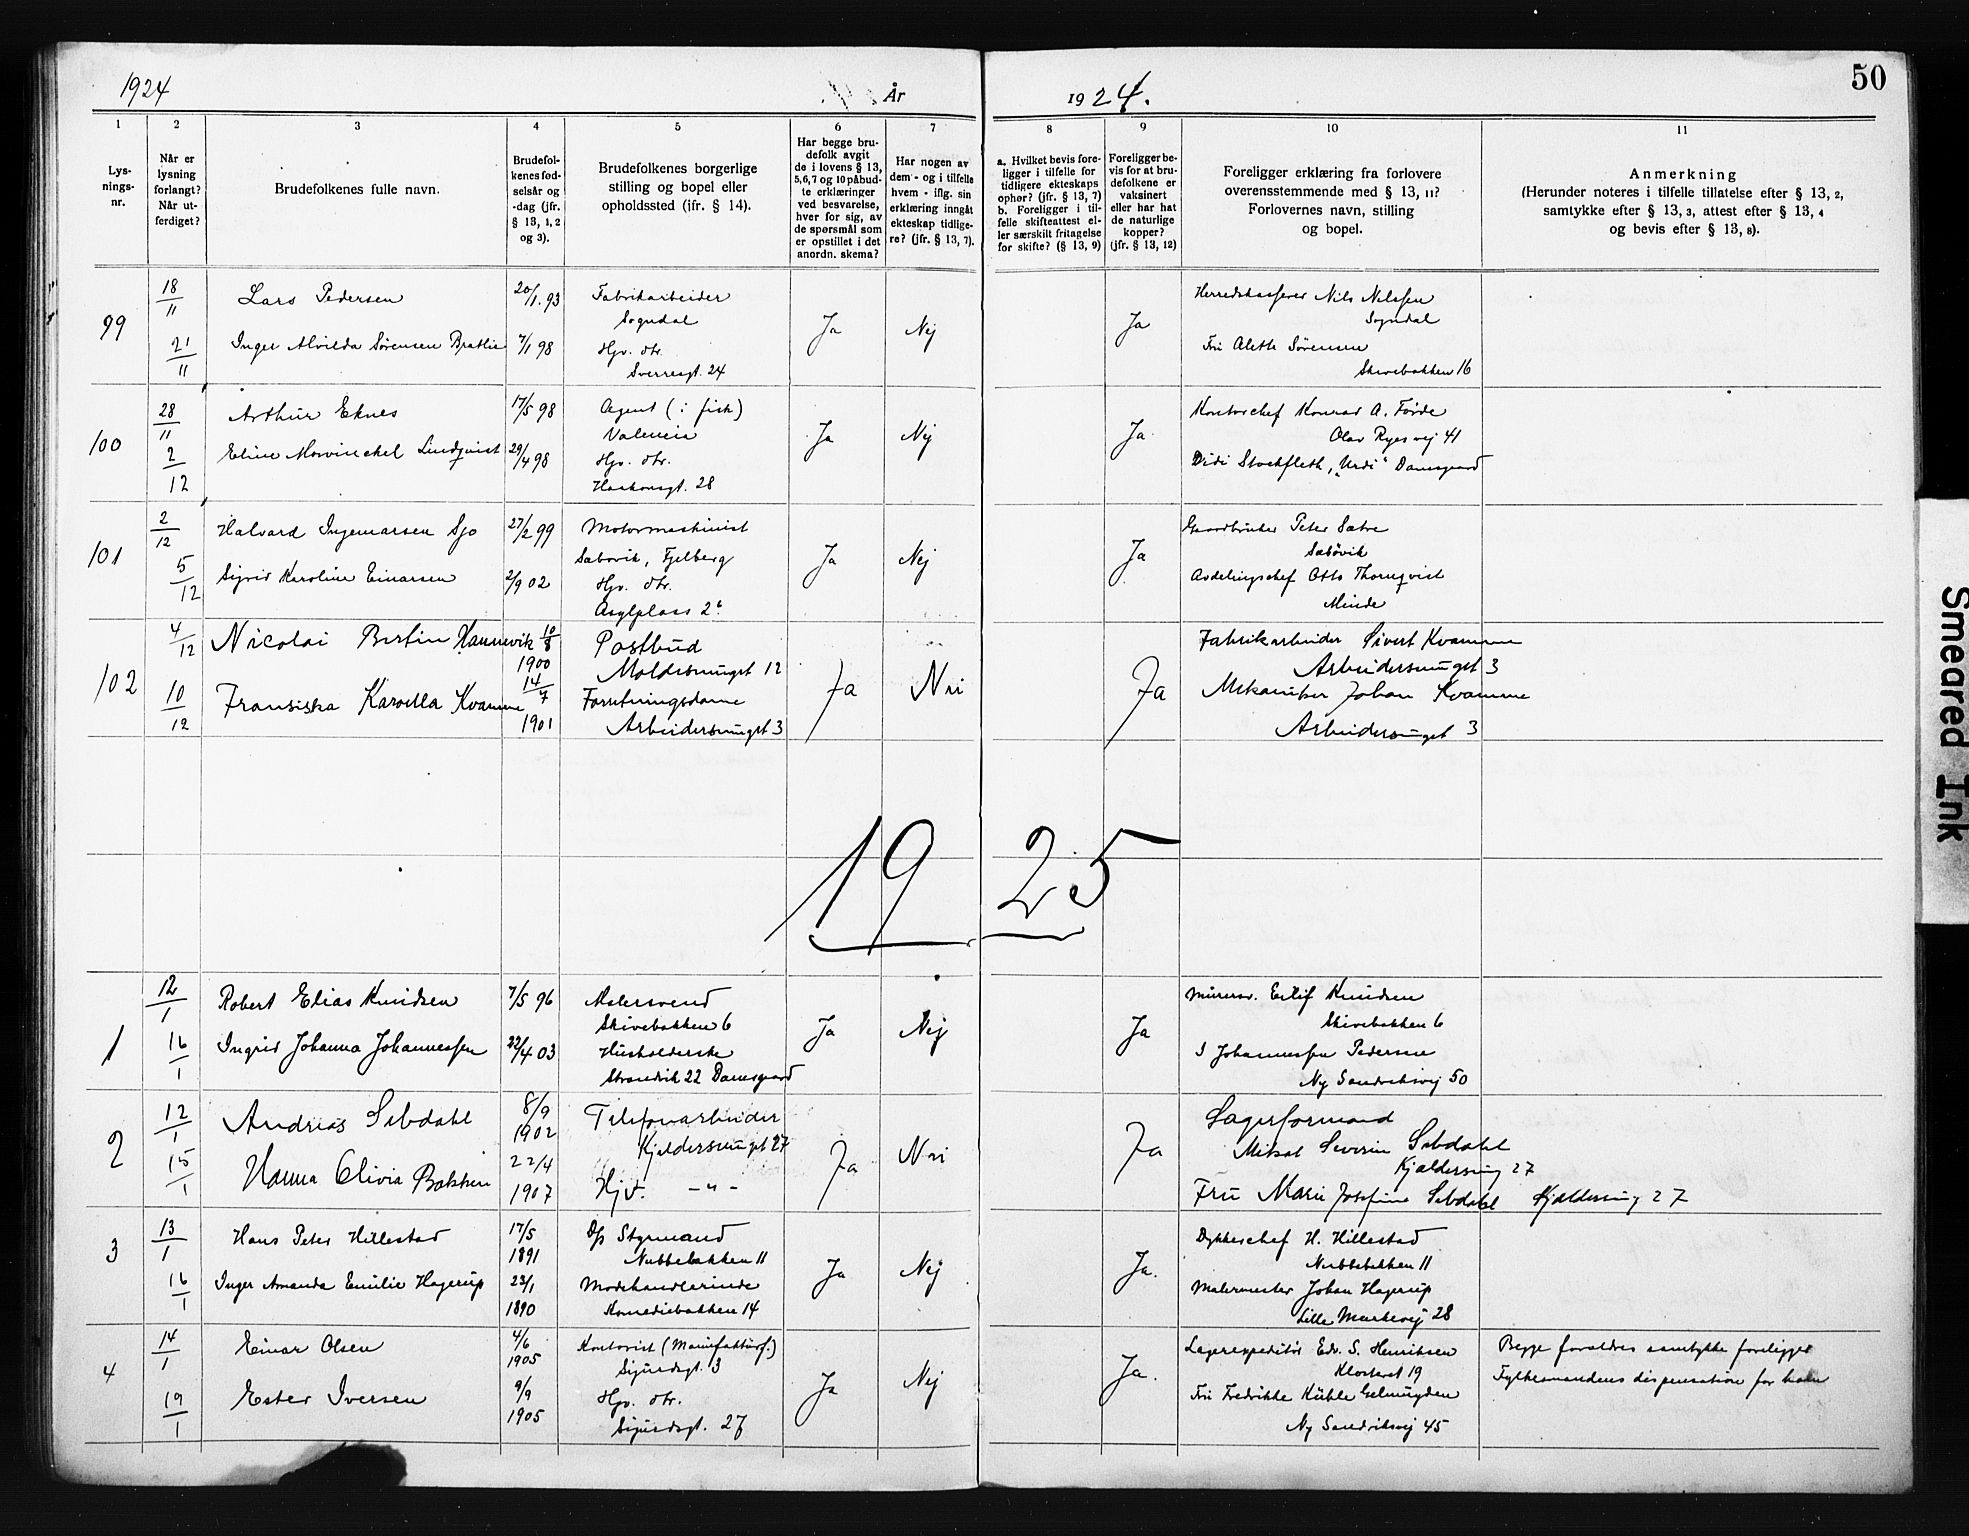 1924 År 1924. 50
1 2 3 4 5 6 7 8 9 10 11
Lys-
nings-
nr.
Når er
lysning
forlangt?
Når ut-
ferdiget?
Brudefolkenes fulle navn.
Brudefol-
kenes fød-
selsår og
-dag (jfr.
§ 13, 1, 2
og 3).
Brudefolkenes borgerlige
stilling og bopel eller
opholdssted (jfr. § 14).
Har begge bru-
defolk avgit
de i lovens § 13,
5,6,7 og 10 påbud-
te erklæringer
ved besvarelse,
hver for sig, av
de spørsmål som
er opstillet i det
anordn. skema?
Har nogen av
dem - og i tilfelle
hvem - iflg. sin
erklæring inngåt
ekteskap tidlige-
re? (jfr. § 13, 7).
a. Hvilket bevis fore-
ligger i tilfelle for
tidligere ekteskaps
ophør? (jfr. § 13, 7)
b. Foreligger i til-
felle skifteattest el-
ler særskilt fritagelse
for skifte? (§ 13, 9)
Foreligger be-
vis for at bru-
defolkene er
vaksinert
eller har hat
de naturlige
kopper?
(jfr. § 13, 12)
Foreligger erklæring fra forlovere
overensstemmende med § 13, 11?
Forlovernes navn, stilling
og bopel.
Anmerkning
(Herunder noteres i tilfelle tillatelse efter § 13, 2,
samtykke efter § 13, 3, attest efter § 13, 4
og bevis efter § 13, 8).
99 18/11 Lars Pedersen 20/1. 93 Fabrikarbeider Ja Nej Ja Herredskasserer Nils Nilssen
Sogndal Sogndal
21/11 Inger Alvilda Sørensen Bratlie 7/1 98 Hjv. dtr. Fru Aleth Sørensen
Sverresgt. 24 Skivebakken 16
100 28/11 Arthur Eknes 17/5 98 Agent (i fisk) Ja Nej Ja. Kontorchef Konrad A. Førde
Valencia Olav Ryes vej 41
2/12 Eline Mowinckel Lindqvist 29/4 98 Hjv. dtr. Didi Stockfleth, "Urdi" Damsgaard
Haakonsgt. 28
101 2/12 Halvard Ingemarsen Sjo 27/2 99 Motormaskinist Ja Nej Ja Gaardbruker Peter Sætre
Sæbøvik, Fjelberg Sæbøvik
5/12 Sigrid Karoline Einarsen 2/9 02 Hjv. dtr. Avdelingschef Otto Thornqvist
Asylplass 2b Minde
102 4/12 Nicolai Bertin Hannevik 10/8 1900 Postbud Ja Nei Ja Fabrikarbeider Sivert Kvamme
Moldesmuget 12 Arbeidersmuget 3
10/12 Fransiska Karoella Kvamme 14/7 1901 Forretningsdame Mekaniker Johan Kvamme
Arbeidersmuget 3 Arbeidersmuget 3
1925
1 12/1 Robert Elias Knudsen 7/5 96 Malersvend Ja Nej Ja Murersv. Eilif Knudsen
Skivebakken 6 Skivebakken 6
16/1 Ingrid Johanna Johannessen 22/4 03 Husholderske J Johannessen Pedersen
Strandvik 22 Damsgaard Ny Sandviksvej 50
2 12/1 Andreas Sebdahl 8/9 1902 Telefonarbeider Ja Nei Ja Lagerformand
Kjeldersmuget 27 Mikal Severin Sebdahl
Kjeldersmug 27
15/1 Hanna Olivia Bakken 22/4 1907 Hjv. -"- Fru Marie Josefine Sebdahl Kjeldersmug 27
3 13/1 Hans Peter Hillestad 17/5 1891 D/s Styrmand Ja Nej Ja. Dykkerchef H. Hillestad
Nubbebakken 11 Nubbebakken 11
16/1 Inger Amanda Emilie Hagerup 23/1 1890 Modehandlerinde Malermester Johan Hagerup
Komediebakken 14 Lille Markevej 28
4 14/1 Einar Olsen 4/6 1905 Kontorist (Manufakturf.) Ja Nej Ja. Lagerexpeditør Edv. S. Henriksen Begge foreldres samtykke foreligger
Sigurdsgt. 3 Klosteret 19 Fylkesmandens dispensation for ham
19/1 Ester Iversen 9/9 1905 Hjv. dtr. Fru Fredrikke Kühle Gelmuyden
Sigurdsgt. 27 Ny Sandviksvej 45
Smeared Ink